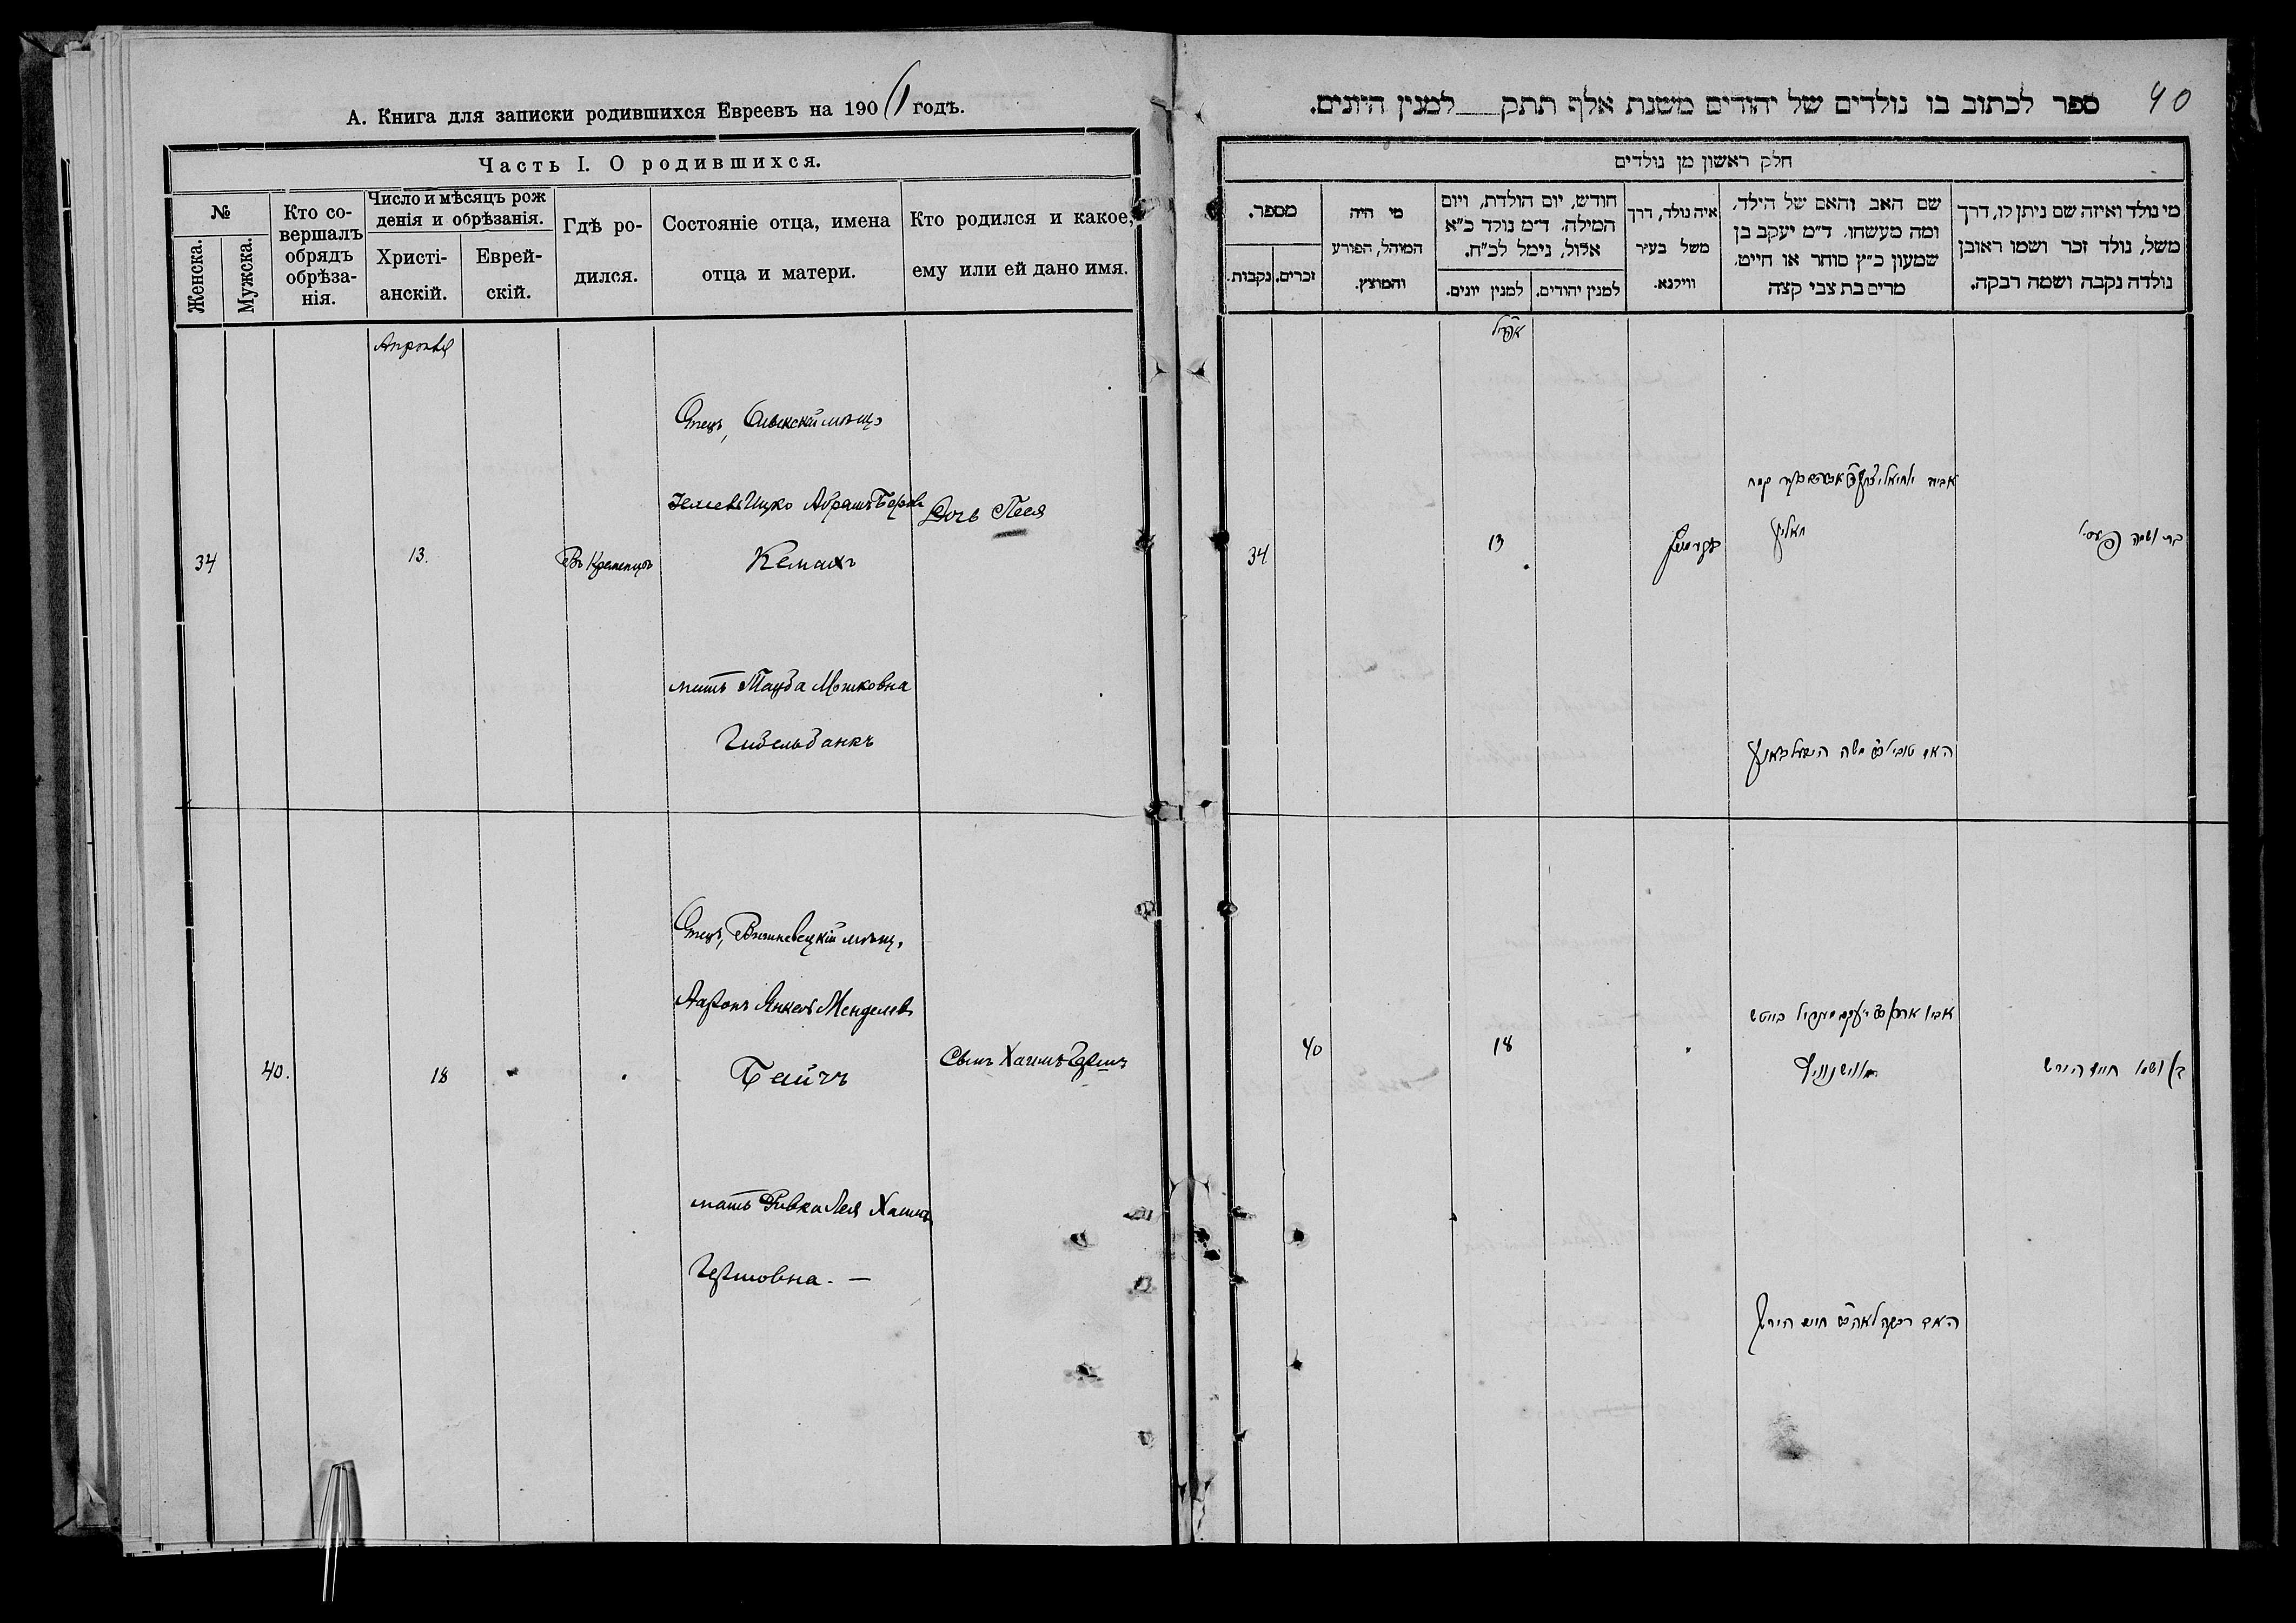 А. Книга для записки родившихся Евреевъ на 190 годъ.
Часть I. О родившихся.
№
Женска.
Мужска.
Кто совершалъ обрядъ обрѣза-
нія.
Число и мѣсяцъ рож
денія и обрѣзанія.
Христі-
анскій.
Еврей-
скій.
Гдѣ ро-
дился.
Состояніе отца, имена
отца и матери.
Кто родился и какое,
ему или ей дано имя.
Апрѣля
Отецъ, Олыкскій мѣщ.
Ицко Абрамъ Беровъ
Дочь Песя
34
13.
Въ Кременцѣ
Кемахъ
мать Тауба Мошковна
Гибельбанкъ
Отецъ, Вишневецкій мѣщ.
Ааронъ Янкель Менделевъ
40.
18
Байчъ
Сынъ Хаимъ Гершъ
мать Ривка Лея Хаимъ
Гершовна. —
40
ספר לכתוב בו נולדים של יהודים משנת אלף תתק למנין היונים.
חלק ראשון מן נולדים
מי נולד ואיזה שם ניתן לו, דרך
משל, נולד זכר ושמו ראובן
נולדה נקבה ושמה רבקה.
שם האב והאם של הילד,
ומה מעשהו. ד״מ יעקב בן
שמעון כ״ץ סוחר או חייט,
מרים בת צבי קצה
איה נולד, דרך
משל בעיר
ווילנא.
חודש, יום הולדת, ויום
המילה. ד״מ נולד כ״א
אלול, נימל לכ״ח.
למנין יהודים.
למנין יונים.
מי היה
המוהל, הפורע
והמוצץ.
מספר.
זכרים.
נקבות.
אפריל
34
13
בת ושמה פעסי
האם טובי משה
40
18
בן ושמו חיים הירש
האם רבקה לאה חיים הירש